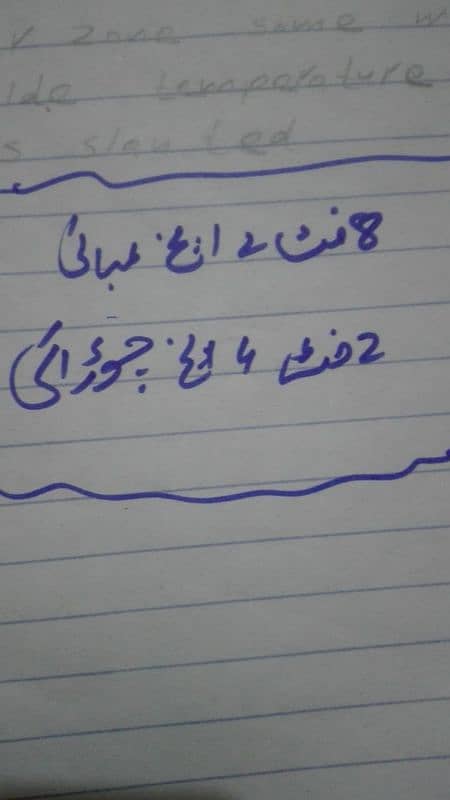 r zone same w
ide temperature
s slanted
8 فٹ 2 انچ لمبائی
2 فٹ 4 انچ چوڑائی